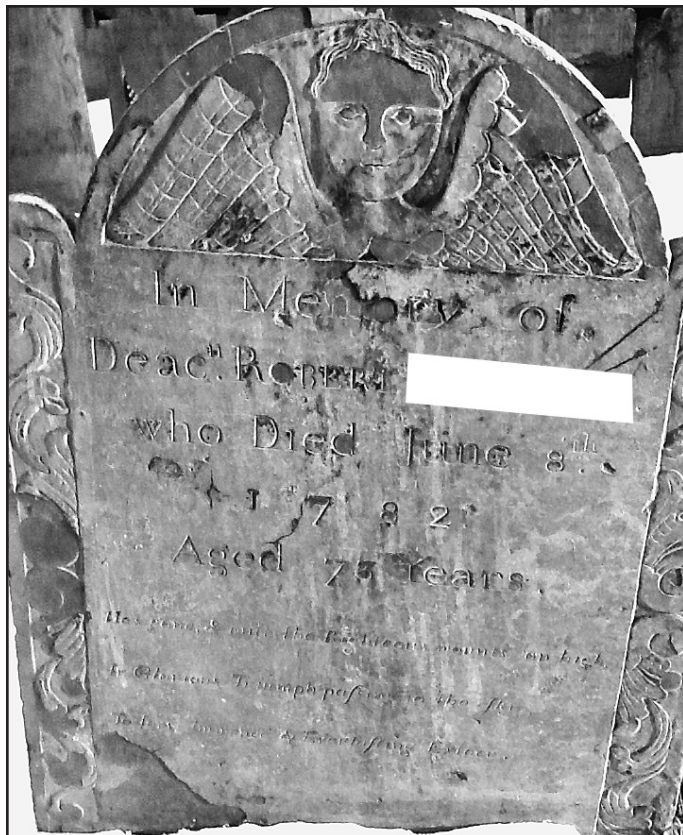 In Memory of.
Deacⁿ. ROBERT
who Died June 8th.
1782.
Aged 73 Years.
the Righteous mounts on high
In Glorious Triumph passing to the sky
To &